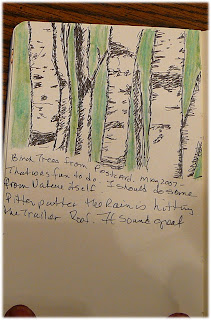 Birch Trees from Postcard. May 2007 -
That was fun to do. I should do some
from Nature itself.
Pitter putter the Rain is hitting
the Trailer Roof. It sounds great